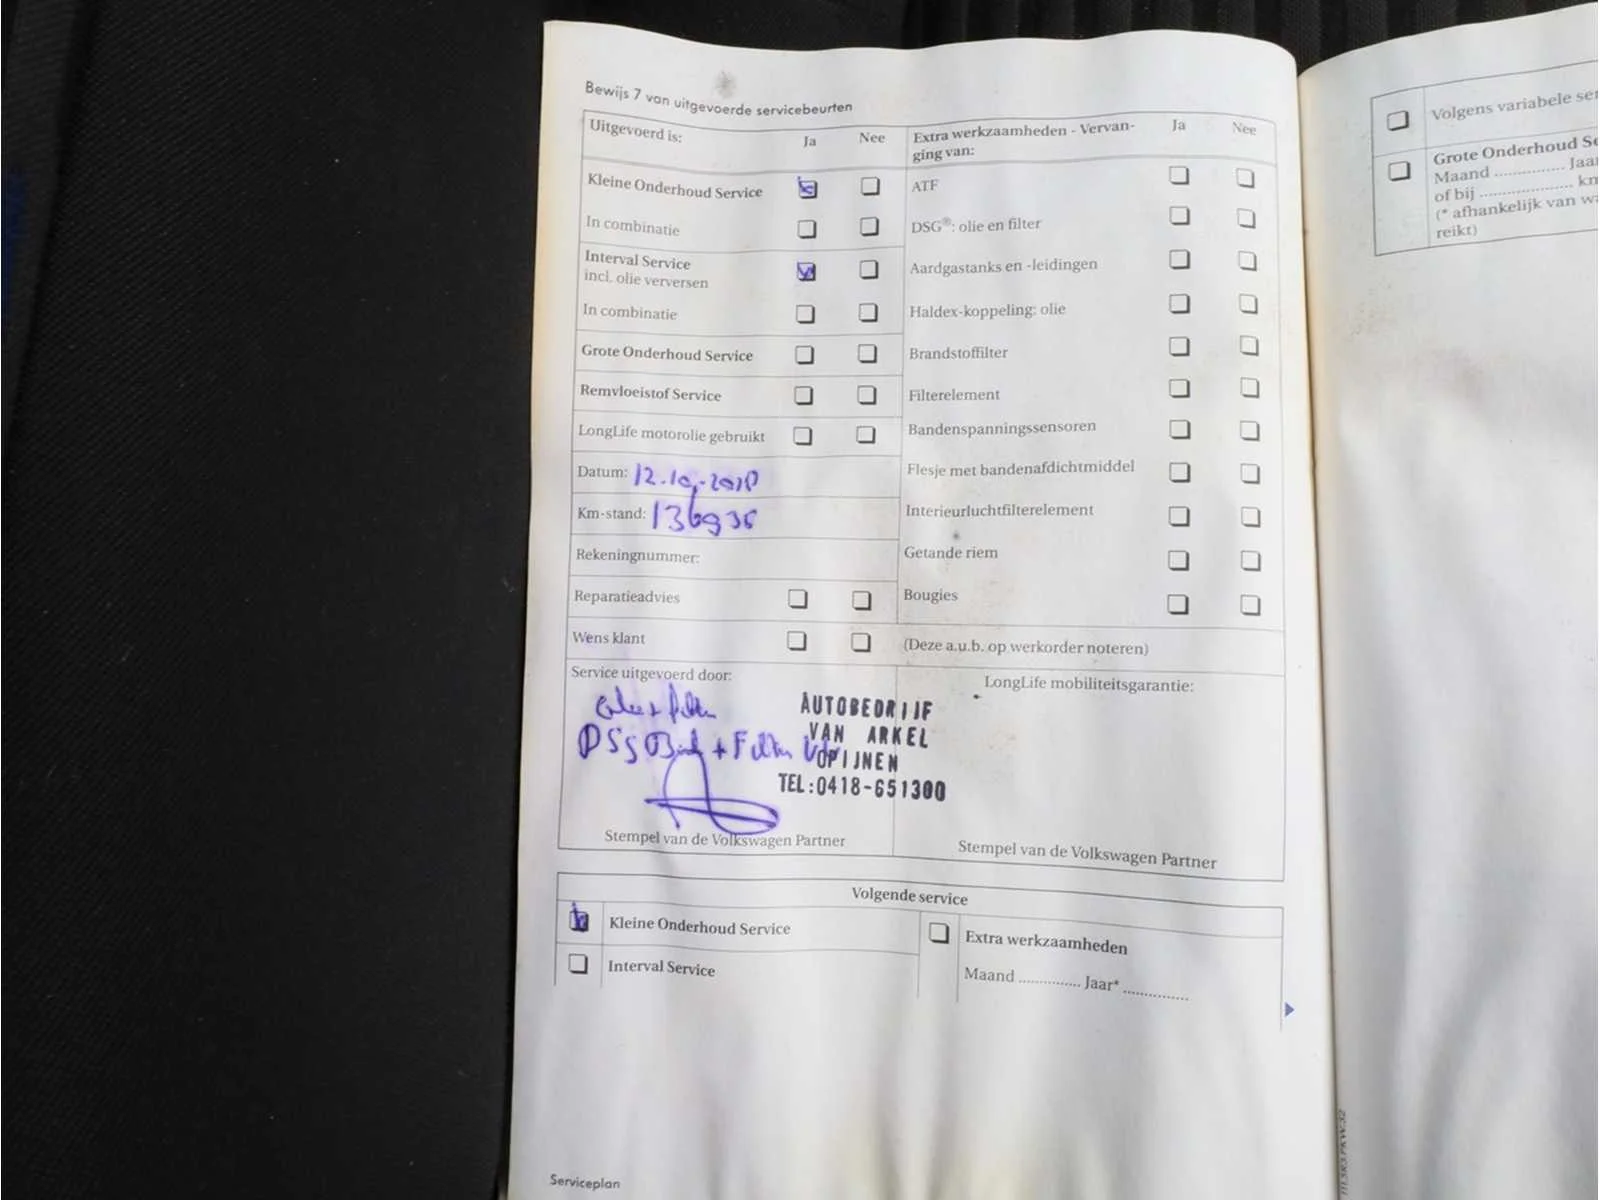 Bewijs 7 van uitgevoerde servicebeurten
Uitgevoerd is: Ja Nee
Kleine Onderhoud Service
In combinatie
Interval Service
incl. olie verversen
In combinatie
Grote Onderhoud Service
Remvloeistof Service
LongLife motorolie gebruikt
Datum: 12.10.-2018
Km-stand: 136935
Rekeningnummer:
Reparatieadvies
Wens klant
Extra werkzaamheden - Vervan-
ging van: Ja Nee
ATF
DSG®: olie en filter
Aardgastanks en -leidingen
Haldex-koppeling: olie
Brandstoffilter
Filterelement
Bandenspanningssensoren
Flesje met bandenafdichtmiddel
Interieurluchtfilterelement
Getande riem
Bougies
(Deze a.u.b. op werkorder noteren)
Service uitgevoerd door:
AUTOBEDRIJF
VAN ARKEL
OPIJNEN
TEL:0418-651300
Stempel van de Volkswagen Partner
LongLife mobiliteitsgarantie:
Stempel van de Volkswagen Partner
Volgende service
Kleine Onderhoud Service
Interval Service
Extra werkzaamheden
Maand .............. Jaar* ..............
Serviceplan
Volgens variabele
Grote Onderhoud
Maand ..............
of bij ....................
(* afhankelijk van
reikt)